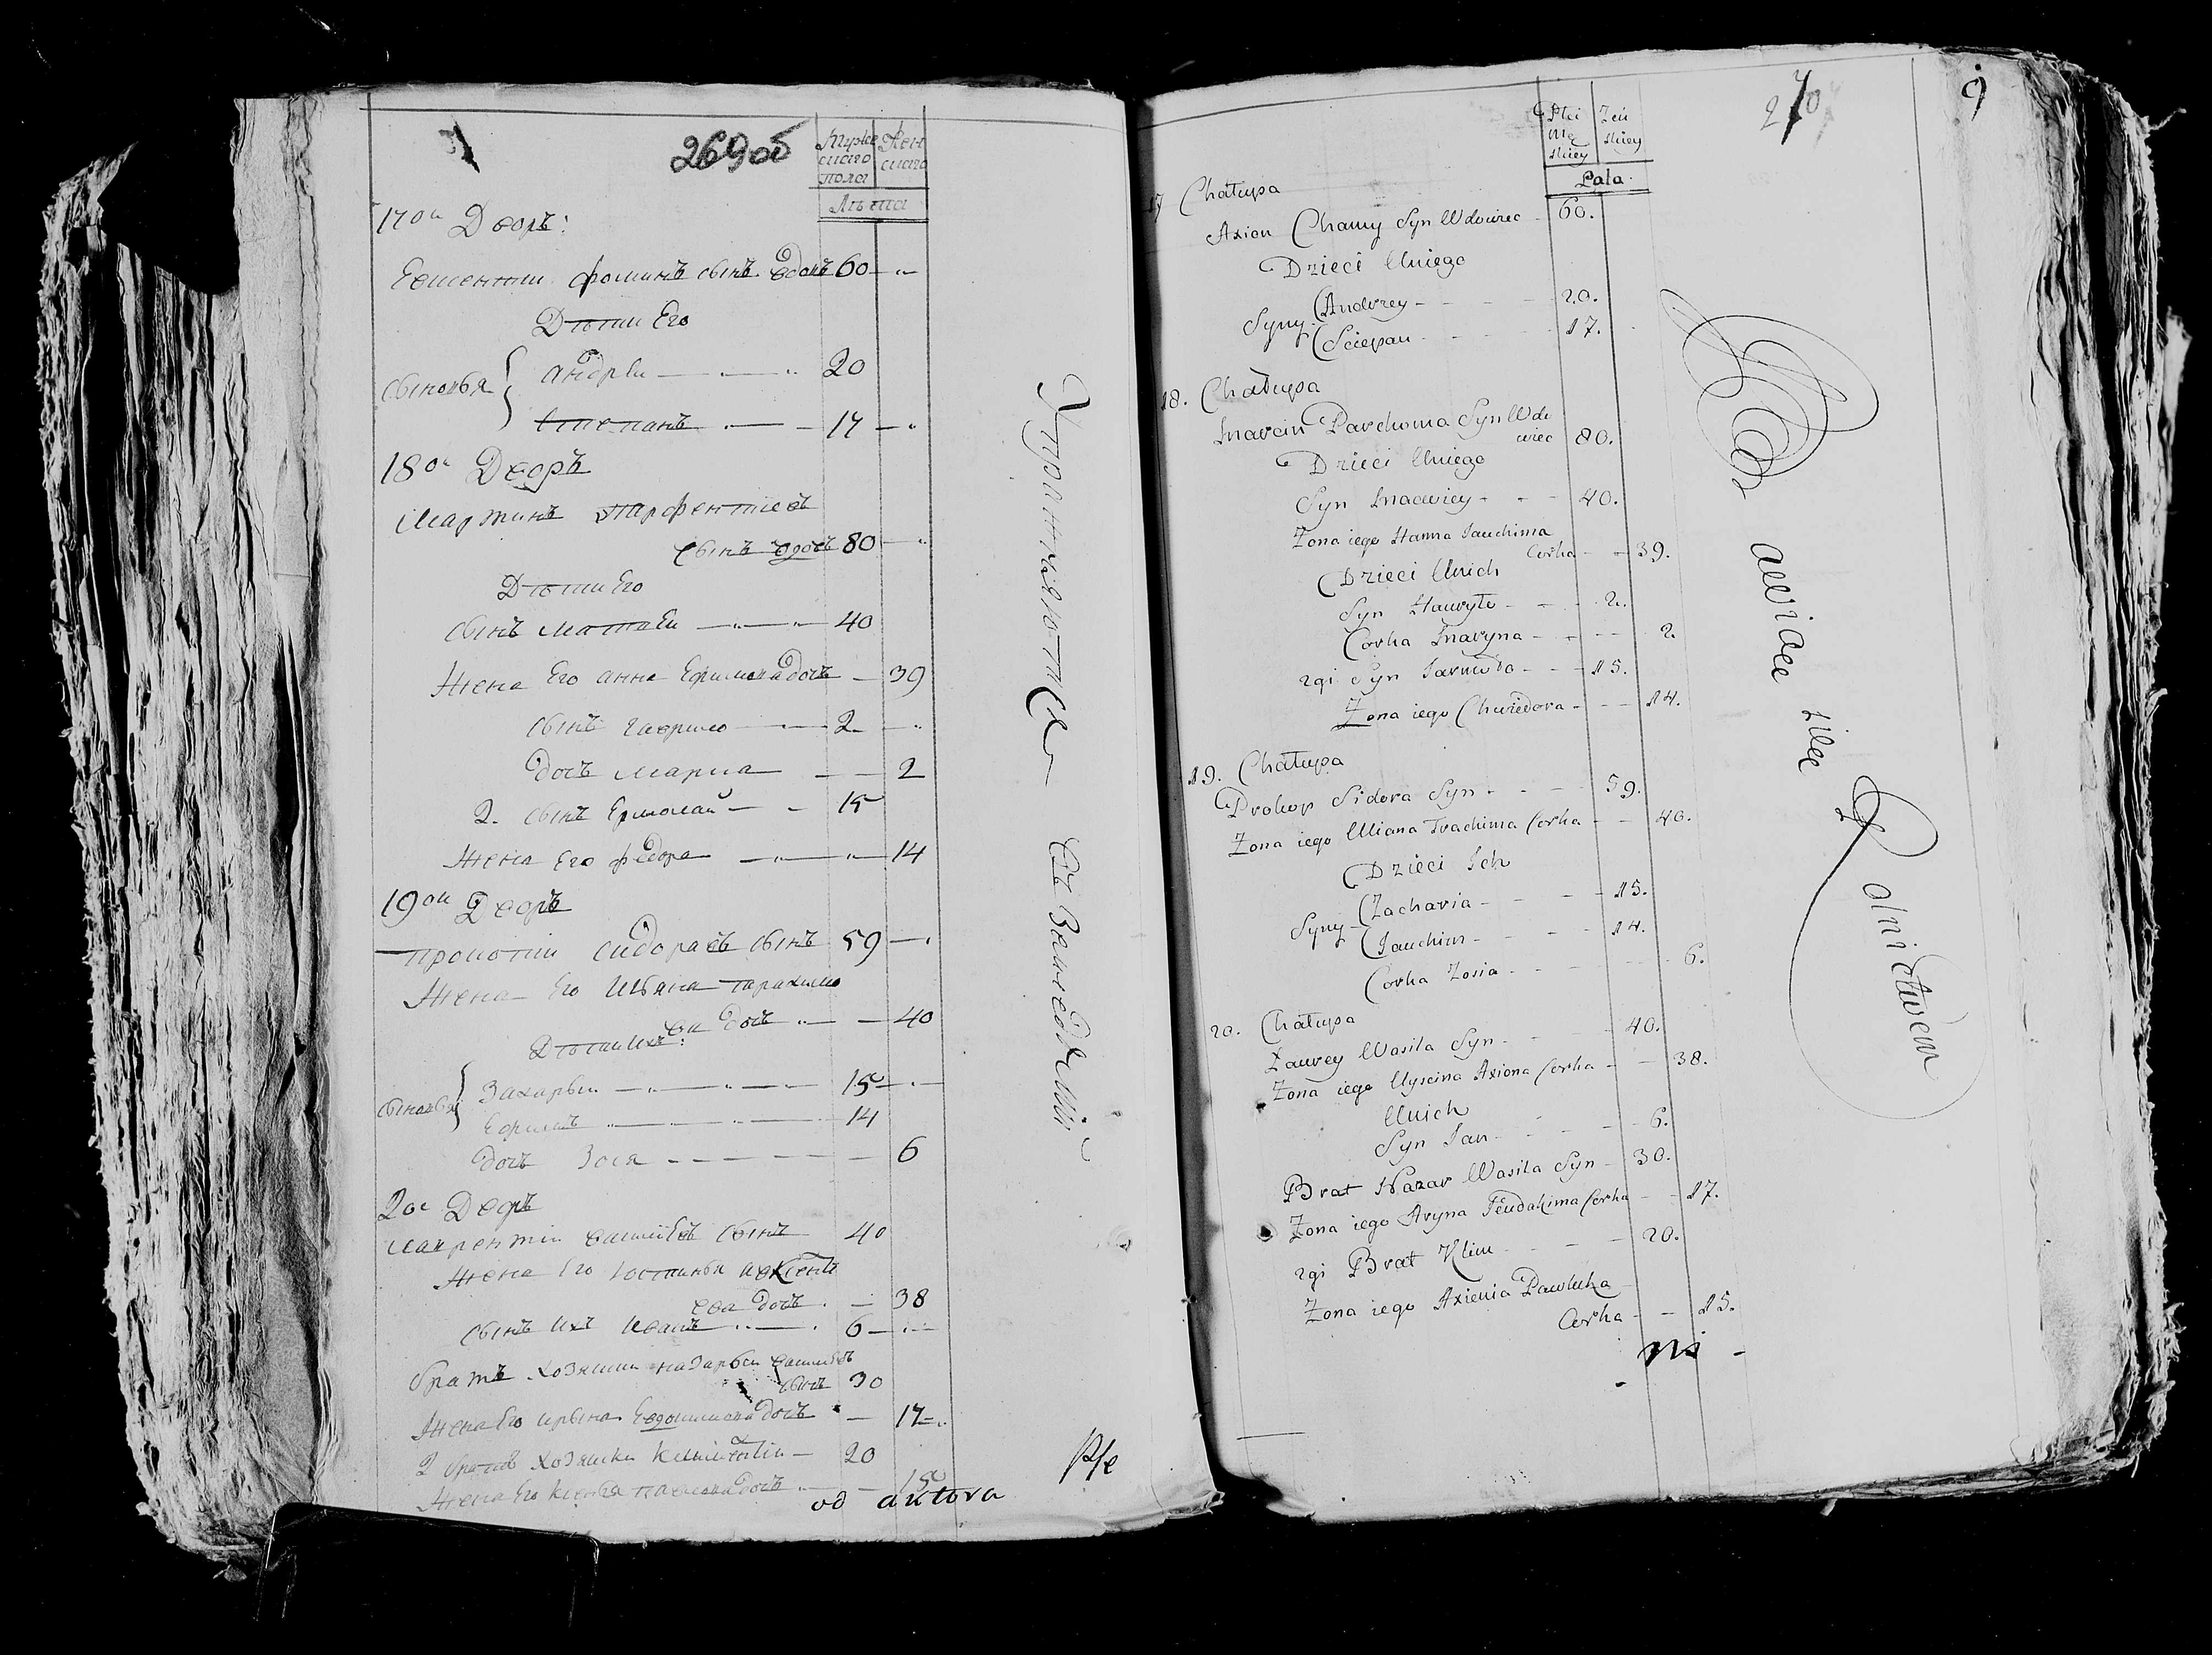 269об
Мужескаго пола
Женскаго
Лѣта
17ои Дворъ:
Евментии Фоминъ сынъ вдовъ 60 — "
Дѣти Его
Сыновья
андрѣи — " — " 20
Степанъ " — — 17 — "
18ои Дворъ
Мартинъ парфентіевъ
сынъ вдовъ 80 — "
Дѣти Его
сынъ матвѣи — " — " — 40
Жена Его анна Ефимова дочь — 39
сынъ гаврило — 2 — "
дочь мариа — — 2
2. сынъ Ермолаи — — 15
Жена Его федора — " — " — 14
19ои Дворъ
прокопіи сидоравъ сынъ 59 — "
Жена Его Ульяна тарахимо
ва дочь " — — 40
Дѣти ихъ:
сыновья
Захарьи — " — " — 15 — " —
Ефимъ " — " — " — 14
дочь Зося — — — — — 6
20и Дворъ
лаврентіи василѣвъ сынъ 40
Жена Его Устинья авксенть
ева дочь . — 38
сынъ ихъ иванъ " — . 6 — " —
братъ хозяина назарьи василѣвъ
сынъ 30
Жена Его ирына Евдокимова дочь — 17 — "
2 братъ хозяина 20
Жена Его Ксенья павлова дочь " — — 15
od aktora
Ptc
Хуронжаются Съ
270
9
Płci męskiey
Żeńskiey
Lata
17 Chałupa
Axion Chamy Syn Wdowiec — 60.
Dzieci Uniego
Syny
Andrzey — — — — 20.
Sciepan — — — 17.
18. Chałupa
Marcin Parchoma Syn Wdo
wiec 80.
Dzieci Uniego
Syn Maciwiey — — — 40.
Zona iego Hanna Jauchima
Corka — — 39.
Dzieci Unich
Syn Hauryło — — — 2.
Corka Maryna — — — — 2
2gi Syn Jarmoła — — — 15.
Zona iego Chwiedora — — — 14.
19. Chałupa
Prokop Sidora Syn — — — 59.
Zona iego Uliana Trachima Corka — — 40.
Dzieci Ich
Syny
Zacharia — — — 15.
Jauchim — — — — 14.
Corka Zosia — — — — — 6.
20. Chałupa
Ławrey Wasila Syn — — — 40.
Zona iego Uyscina Axiona Corka — — 38.
Unich
Syn Jan — — — — 6.
Brat Nazar Wasila Syn — 30.
Zona iego Aryna Jeudakima Corka — — 17.
2gi Brat Klim — — — 20.
Zona iego Axienia Pawluka
Corka — — 15.